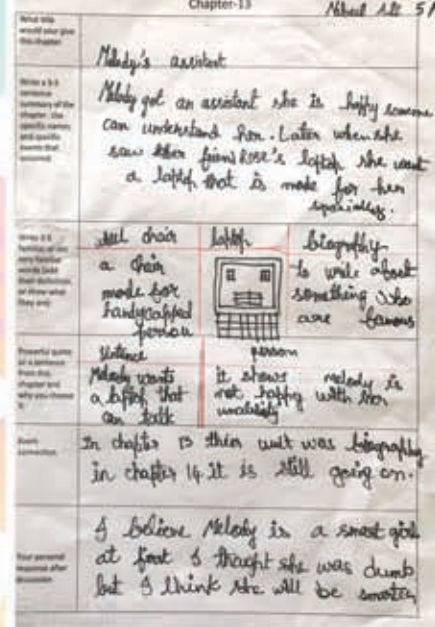 Chapter-13
5
What title would your give this chapter
Melody's assistent
Write a 3-5 sentence summary of the chapter. Use specific names and specific events that occurred
Melody got an assistent she is happy someone
can understand her. Later when she
saw her friend Rose's laptop she want
a laptop that is made for her
specially.
chair
laptop
biography
a chair
made for
handycapped
person
to write about
something who
are famous
Powerful quote or a sentence from this chapter and why you choose it
sentence
person
Melody wants
a laptop that
can talk
it shows melody is
not happy with her
connection
In chapter 13 their unit was biography
in chapter 14 it is still going on.
Your personal response after discussion
I believe Melody is a smart girl
at first I thaught she was dumb
but I think she will be smarter